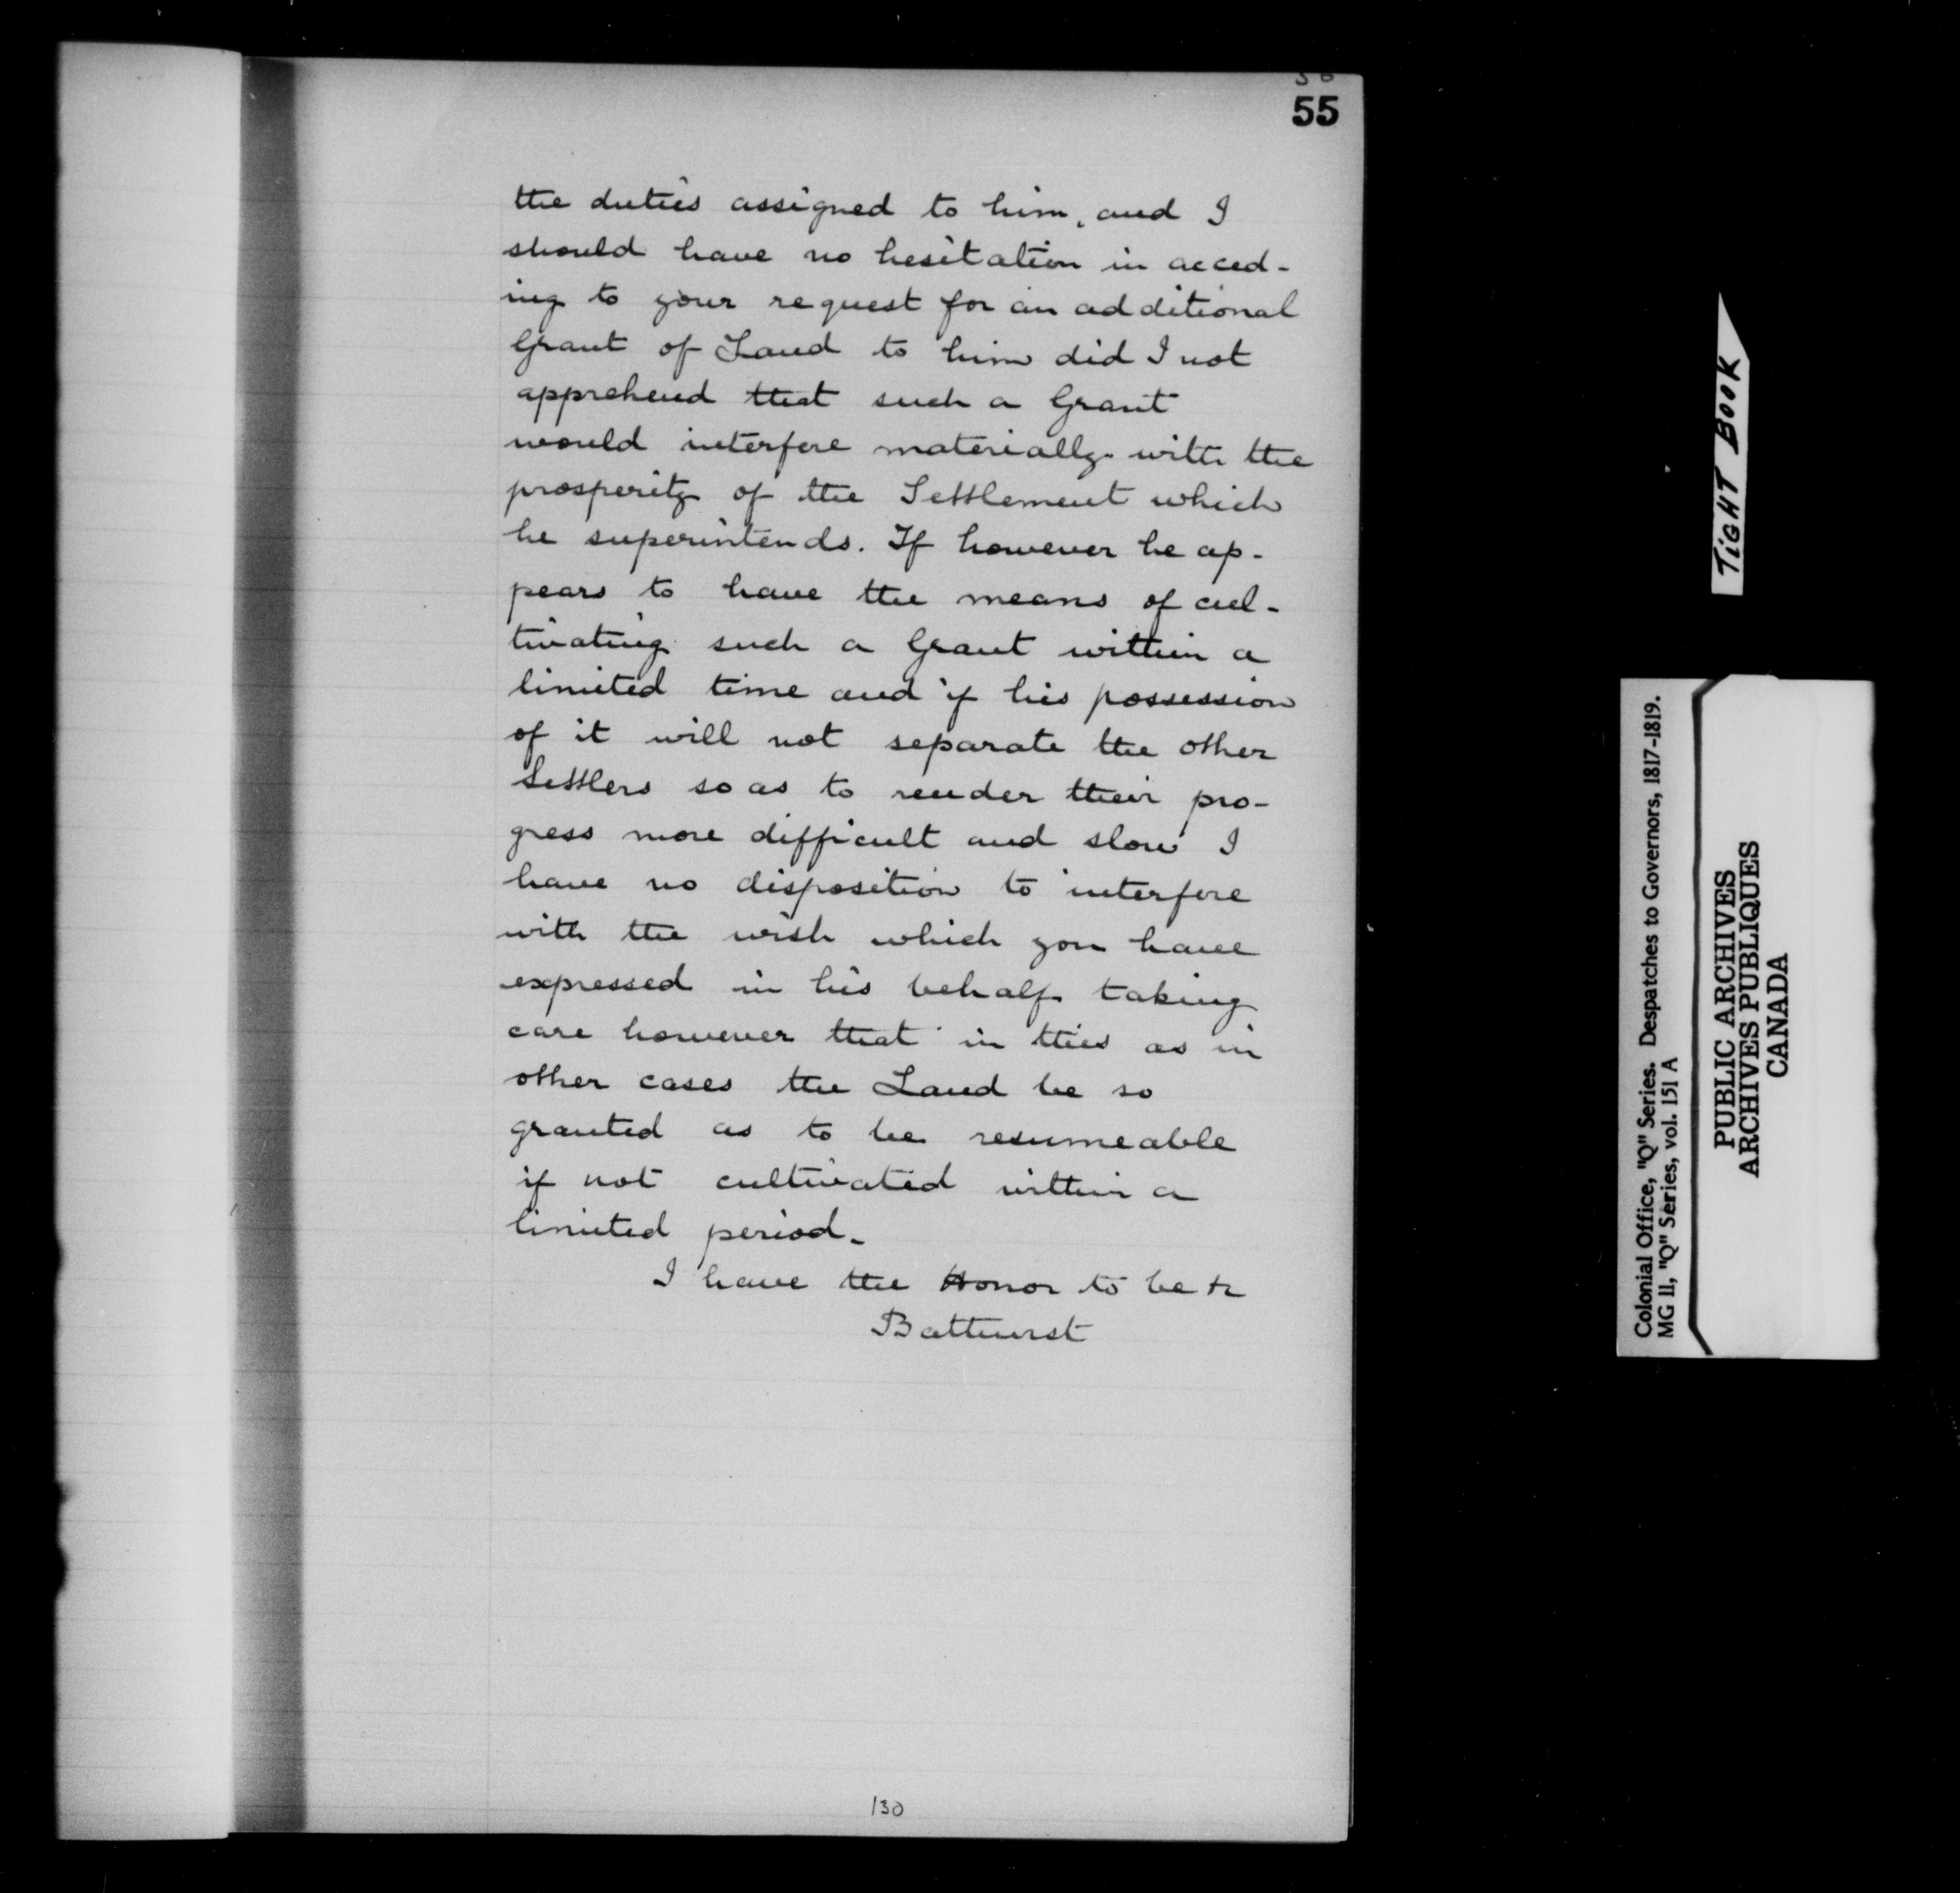 55
the duties assigned to him, and I
should have no hesitation in acced-
ing to your request for an additional
Grant of Land to him did I not
apprehend that such a Grant
would interfere materially with the
prosperity of the Settlement which
he superintends. If however he ap-
pears to have the means of cul-
tivating such a Grant within a
limited time and if his possession
of it will not separate the other
Settlers so as to render their pro-
gress more difficult and slow I
have no disposition to interfere
with the wish which you have
expressed in his behalf taking
care however that in this as in
other cases the Land be so
granted as to be resumeable
if not cultivated within a
limited period.
I have the Honor to be &
Bathurst
130
TIGHT BOOK
Colonial Office, "Q" Series. Despatches to Governors, 1817-1819.
MG 11, "Q" Series, vol. 151 A
PUBLIC ARCHIVES
ARCHIVES PUBLIQUES
CANADA